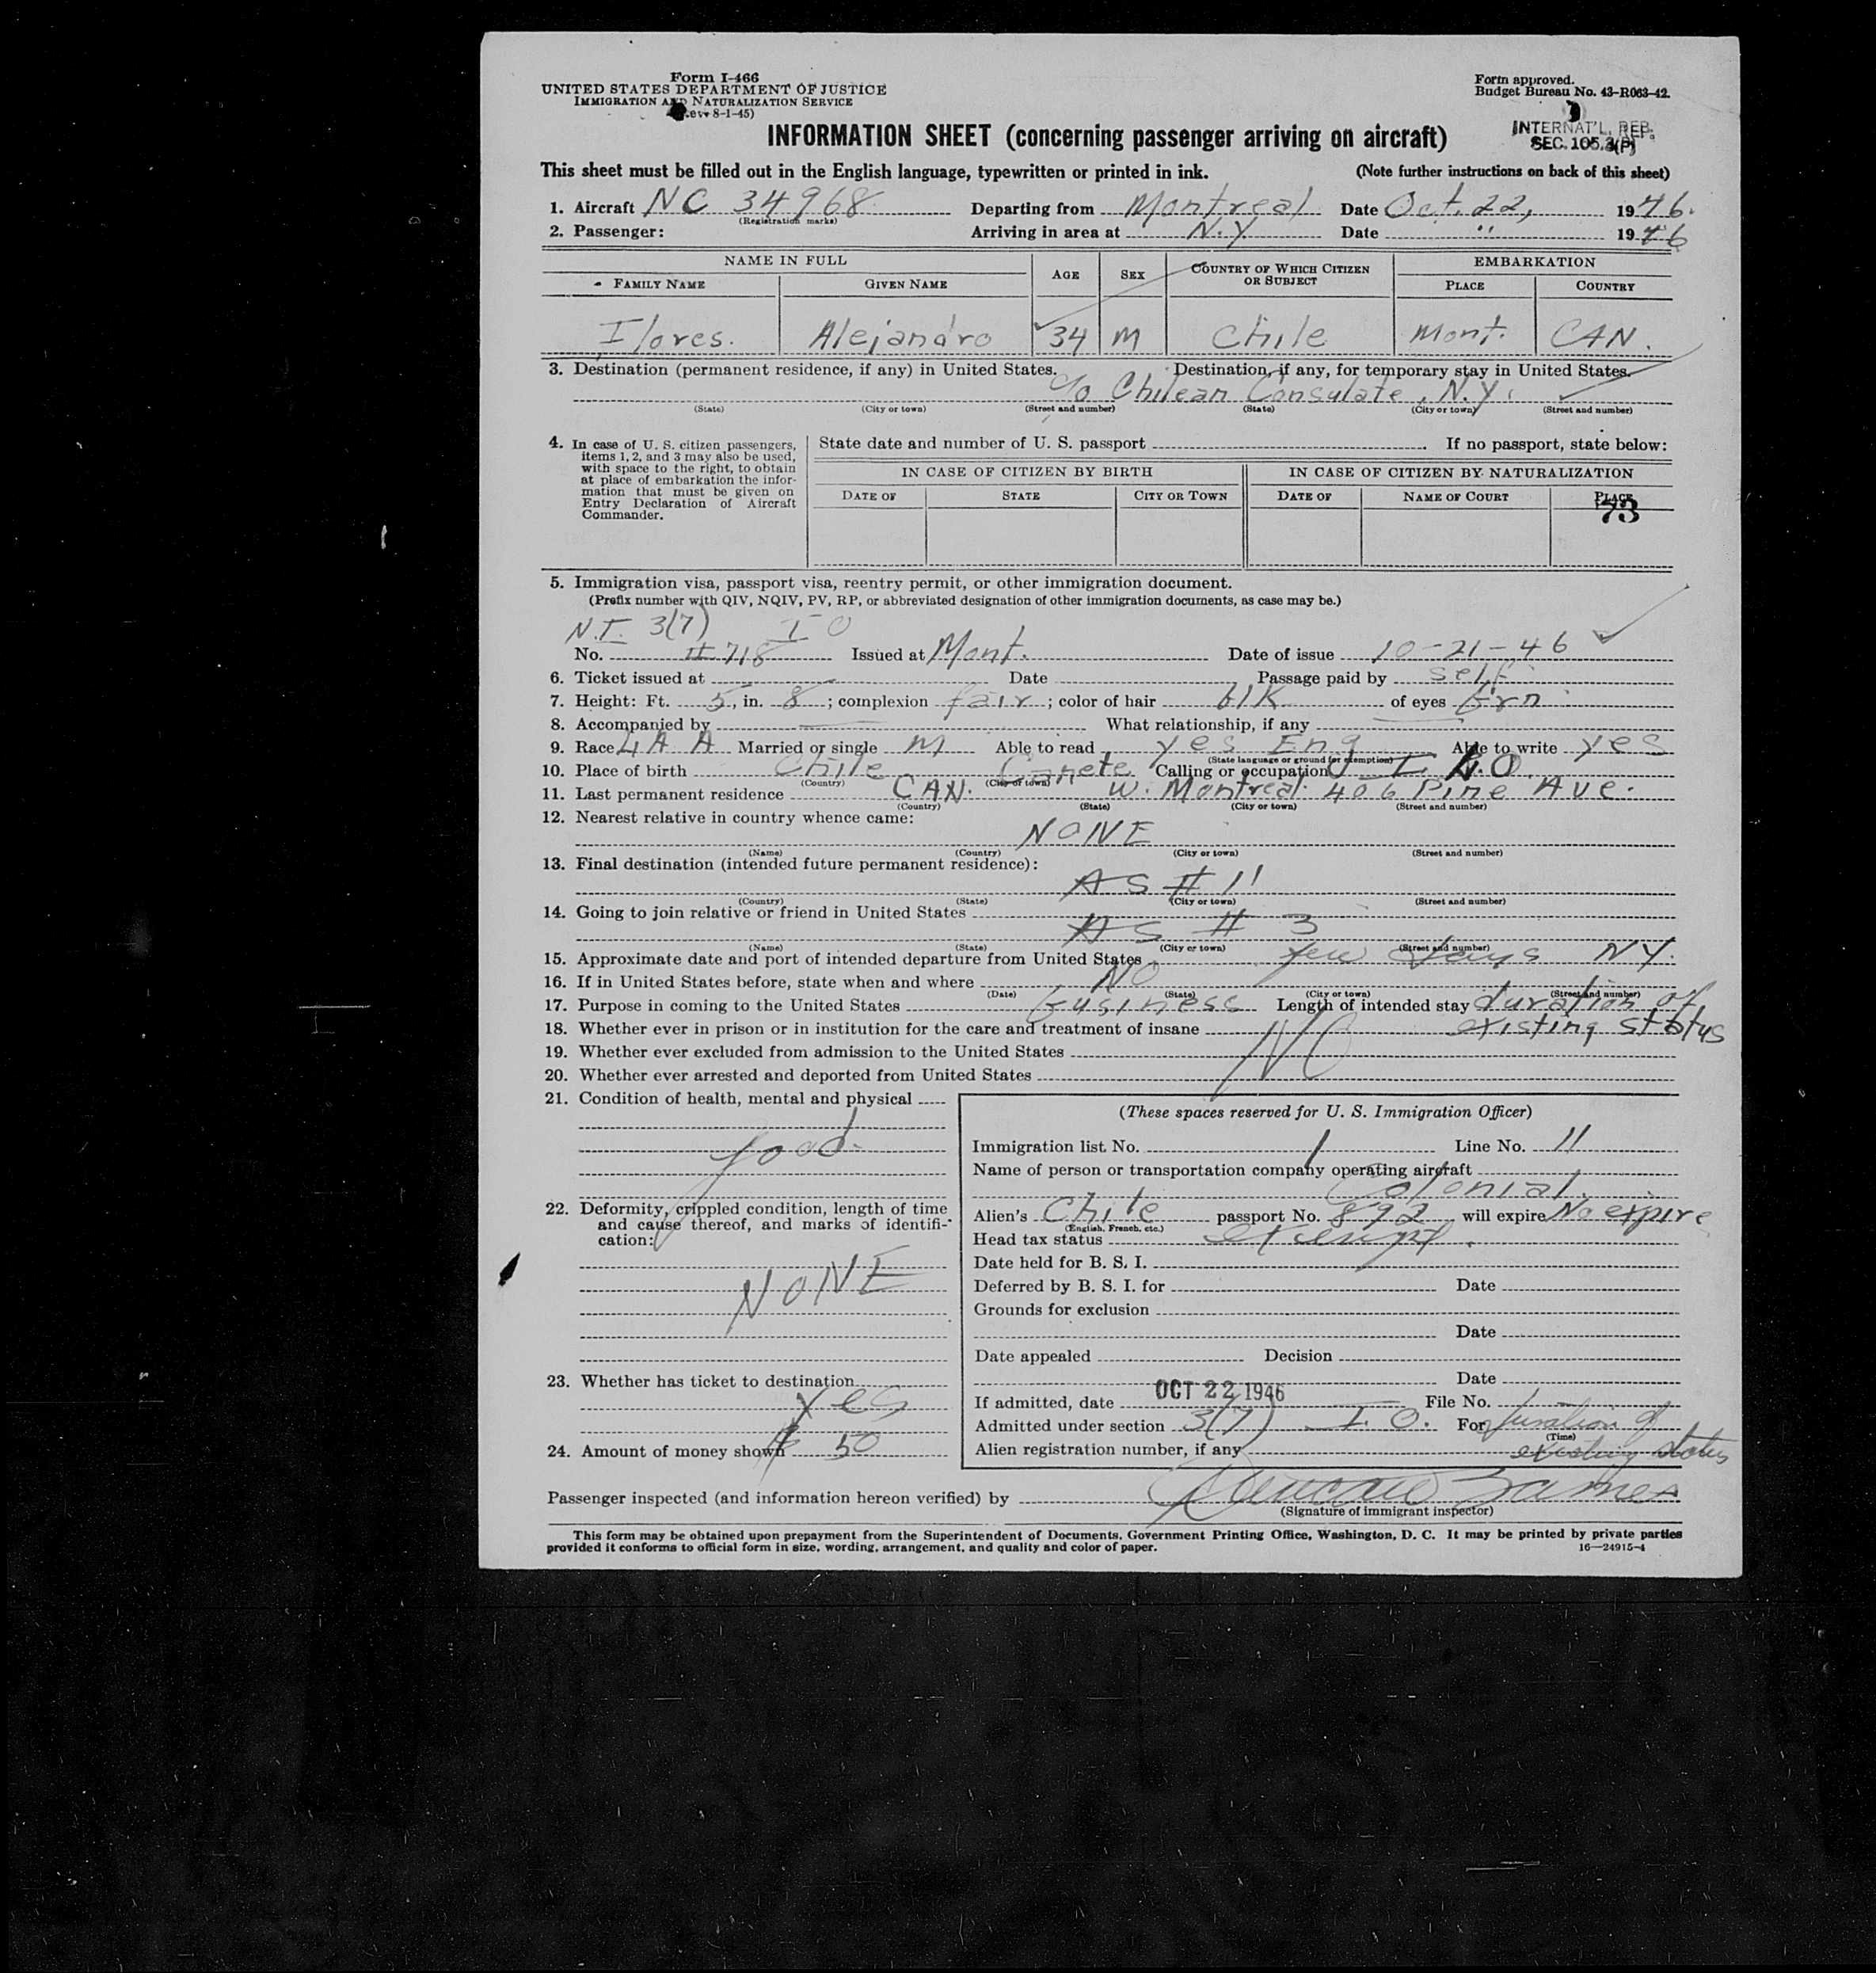 Form I-466
UNITED STATES DEPARTMENT OF JUSTICE
IMMIGRATION AND NATURALIZATION SERVICE
(Rev. 8-1-45)
Form approved.
Budget Bureau No. 43-R063-42.
INFORMATION SHEET (concerning passenger arriving on aircraft)
INTERNAT'L. REP.
SEC. 105.3(P)
This sheet must be filled out in the English language, typewritten or printed in ink. (Note further instructions on back of this sheet)
1. Aircraft NC 34968 Departing from Montreal Date Oct. 22, 1946.
(Registration marks)
2. Passenger: Arriving in area at N.Y Date " 1946
NAME IN FULL AGE SEX COUNTRY OF WHICH CITIZEN OR SUBJECT EMBARKATION
FAMILY NAME GIVEN NAME PLACE COUNTRY
Flores. Alejandro 34 M Chile Mont. CAN.
3. Destination (permanent residence, if any) in United States. Destination, if any, for temporary stay in United States.
c/o Chilean Consulate, N.Y.
(State) (City or town) (Street and number) (State) (City or town) (Street and number)
4. In case of U. S. citizen passengers, items 1, 2, and 3 may also be used, with space to the right, to obtain at place of embarkation the information that must be given on Entry Declaration of Aircraft Commander.
State date and number of U. S. passport If no passport, state below:
IN CASE OF CITIZEN BY BIRTH IN CASE OF CITIZEN BY NATURALIZATION
DATE OF STATE CITY OR TOWN DATE OF NAME OF COURT PLACE
73
5. Immigration visa, passport visa, reentry permit, or other immigration document.
(Prefix number with QIV, NQIV, PV, RP, or abbreviated designation of other immigration documents, as case may be.)
N.I. 3(7) I O
No. #718 Issued at Mont. Date of issue 10-21-46
6. Ticket issued at Date Passage paid by self
7. Height: Ft. 5, in. 8; complexion fair; color of hair blk of eyes brn
8. Accompanied by What relationship, if any
9. Race Married or single M Able to read yes Eng Able to write yes
(State language or ground for exemption)
10. Place of birth Chile Canete Calling or occupation
(Country) (City or town)
11. Last permanent residence CAN. W. Montreal. 406 Pine Ave.
(Country) (State) (City or town) (Street and number)
12. Nearest relative in country whence came:
NONE
(Name) (Country) (City or town) (Street and number)
13. Final destination (intended future permanent residence):
AS # 11
(Country) (State) (City or town) (Street and number)
14. Going to join relative or friend in United States
AS # 3
(Name) (State) (City or town) (Street and number)
15. Approximate date and port of intended departure from United States few days NY.
16. If in United States before, state when and where NO
(Date) (State) (City or town) (Street and number)
17. Purpose in coming to the United States business Length of intended stay duration of
existing status
18. Whether ever in prison or in institution for the care and treatment of insane
19. Whether ever excluded from admission to the United States NO
20. Whether ever arrested and deported from United States
21. Condition of health, mental and physical
good
22. Deformity, crippled condition, length of time and cause thereof, and marks of identification:
NONE
23. Whether has ticket to destination
yes
24. Amount of money shown $ 50
(These spaces reserved for U. S. Immigration Officer)
Immigration list No. 1 Line No. 11
Name of person or transportation company operating aircraft
Colonial.
Alien's Chile passport No. 892 will expire No expire
(English, French, etc.)
Head tax status exempt.
Date held for B. S. I.
Deferred by B. S. I. for Date
Grounds for exclusion
Date
Date appealed Decision
Date
If admitted, date OCT 22 1946 File No.
Admitted under section 3(7) I. O. For duration of
(Time)
Alien registration number, if any existing status
Passenger inspected (and information hereon verified) by
(Signature of immigrant inspector)
This form may be obtained upon prepayment from the Superintendent of Documents, Government Printing Office, Washington, D. C. It may be printed by private parties
provided it conforms to official form in size, wording, arrangement, and quality and color of paper. 16—24915-4